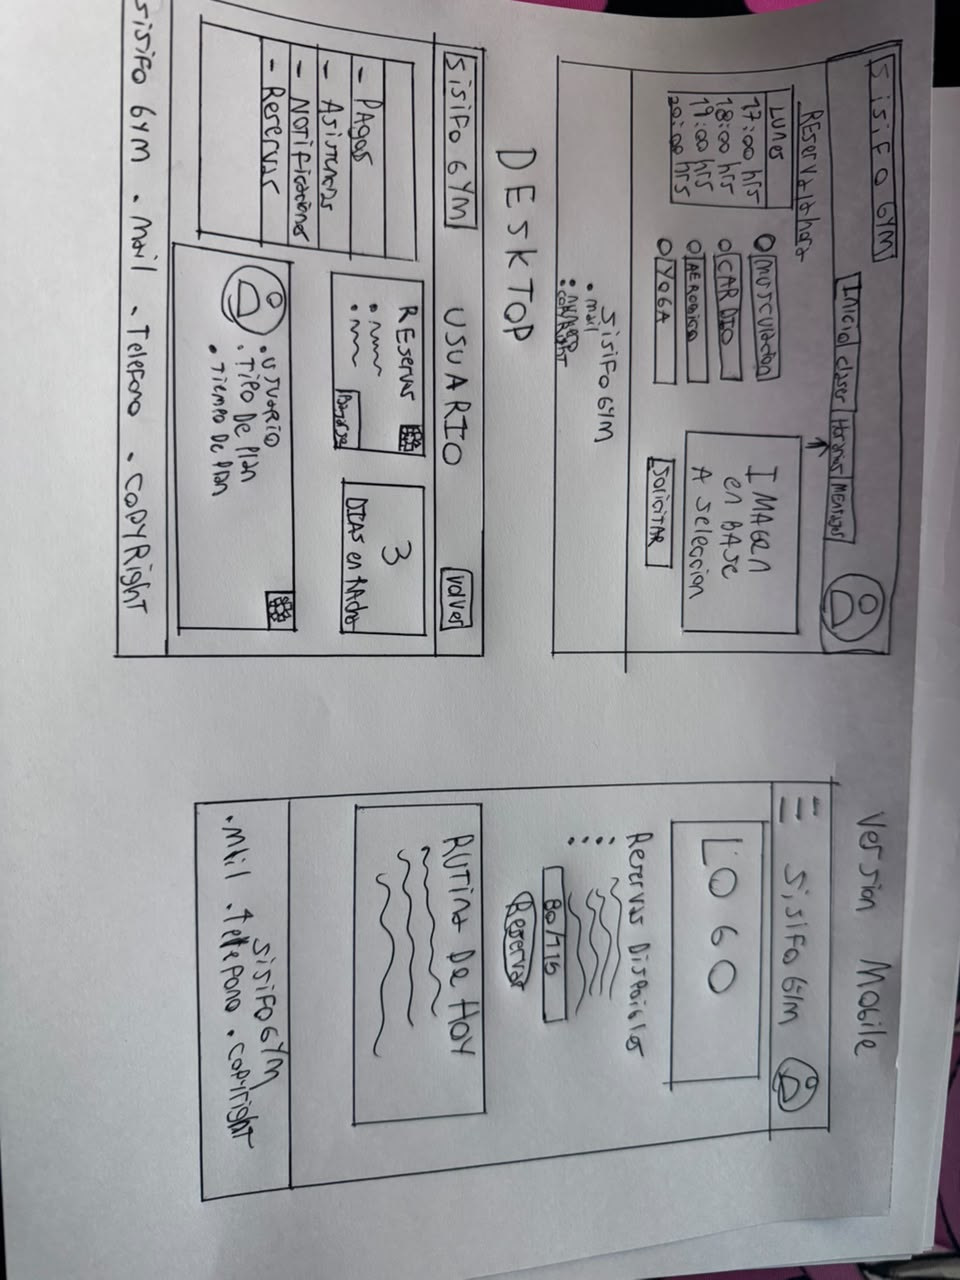 SISIFO GYM
Inicio clases Horarios Mensajes
Reserva la hora
LUNES
17:00 hrs
18:00 hrs
19:00 hrs
20:00 hrs
MUSCULACION
CARDIO
AEROBICO
YOGA
IMAGEN
en BASE
A selecciOn
SOLICITAR
SISIFO GYM
• mail
• COPYRIGHT
DESKTOP
SISIFO GYM
USUARIO
VOLVER
- PAGOS
- Notificaciones
- Reservas
Reservas
3
DIAS en RAcha
• USUARIO
• TIPO DE PlAn
• Tiempo De PlAn
SISIFO GYM . mail . Telefono . COPYRight
Version Mobile
SISIFO GYM
LOGO
Reservas Disponibles
80/115
Reservar
RUTINA DE HOY
SISIFO GYM
.mail .telefono .copyright